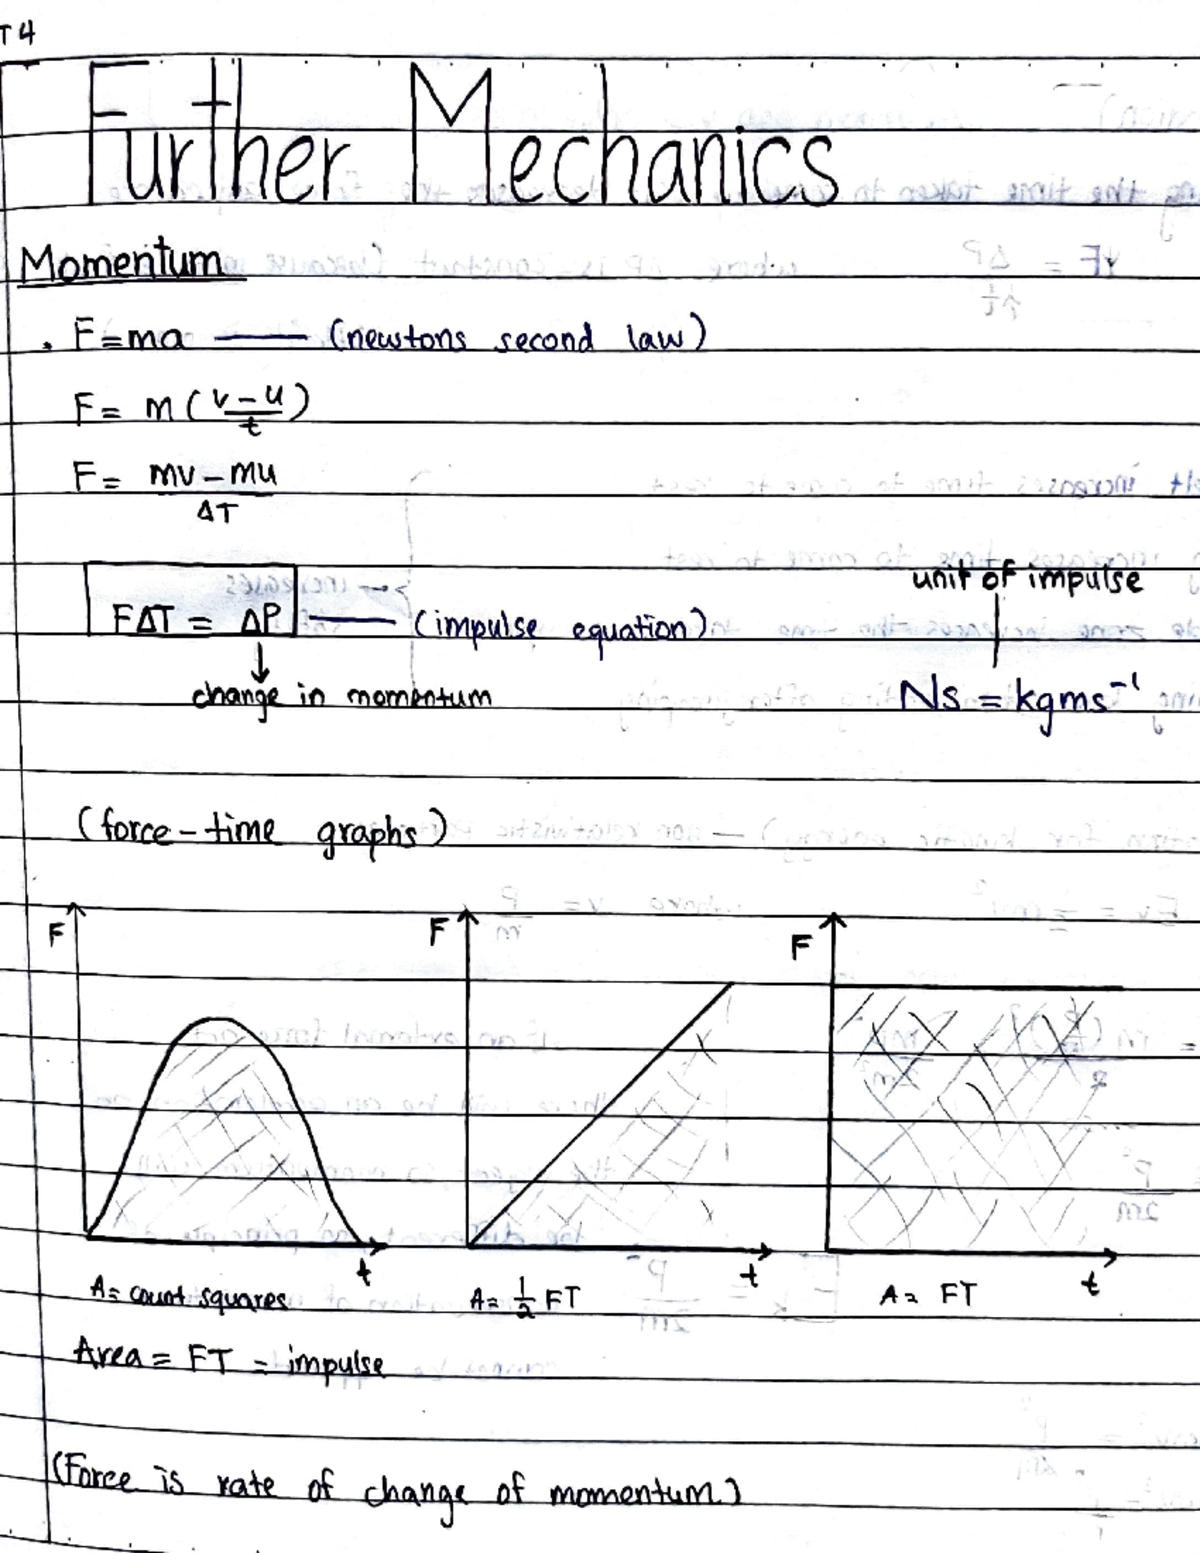 T4
Further Mechanics
Momentum
. F=ma —— (newtons second law)
F= m(v-u/t)
F= mv-mu/ΔT
FΔT = ΔP —— (impulse equation)
unit of impulse
change in momentum
Ns = kgms⁻¹
(force-time graphs)
F F F
t t t
A= count squares A= 1/2 FT A= FT
Area = FT = impulse
(Force is rate of change of momentum)